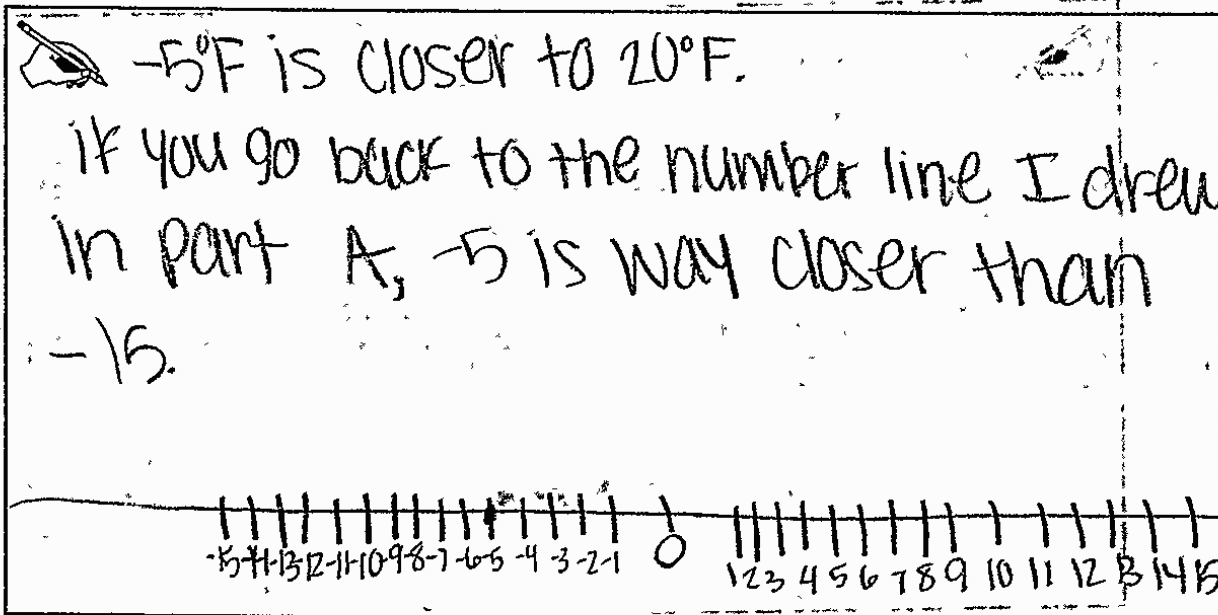 -5°F is closer to 20°F.
if you go back to the number line I drew
in part A, -5 is way closer than
-15.
-15 -14 -13 -12 -11 -10 -9 -8 -7 -6 -5 -4 -3 -2 -1 0 1 2 3 4 5 6 7 8 9 10 11 12 13 14 15